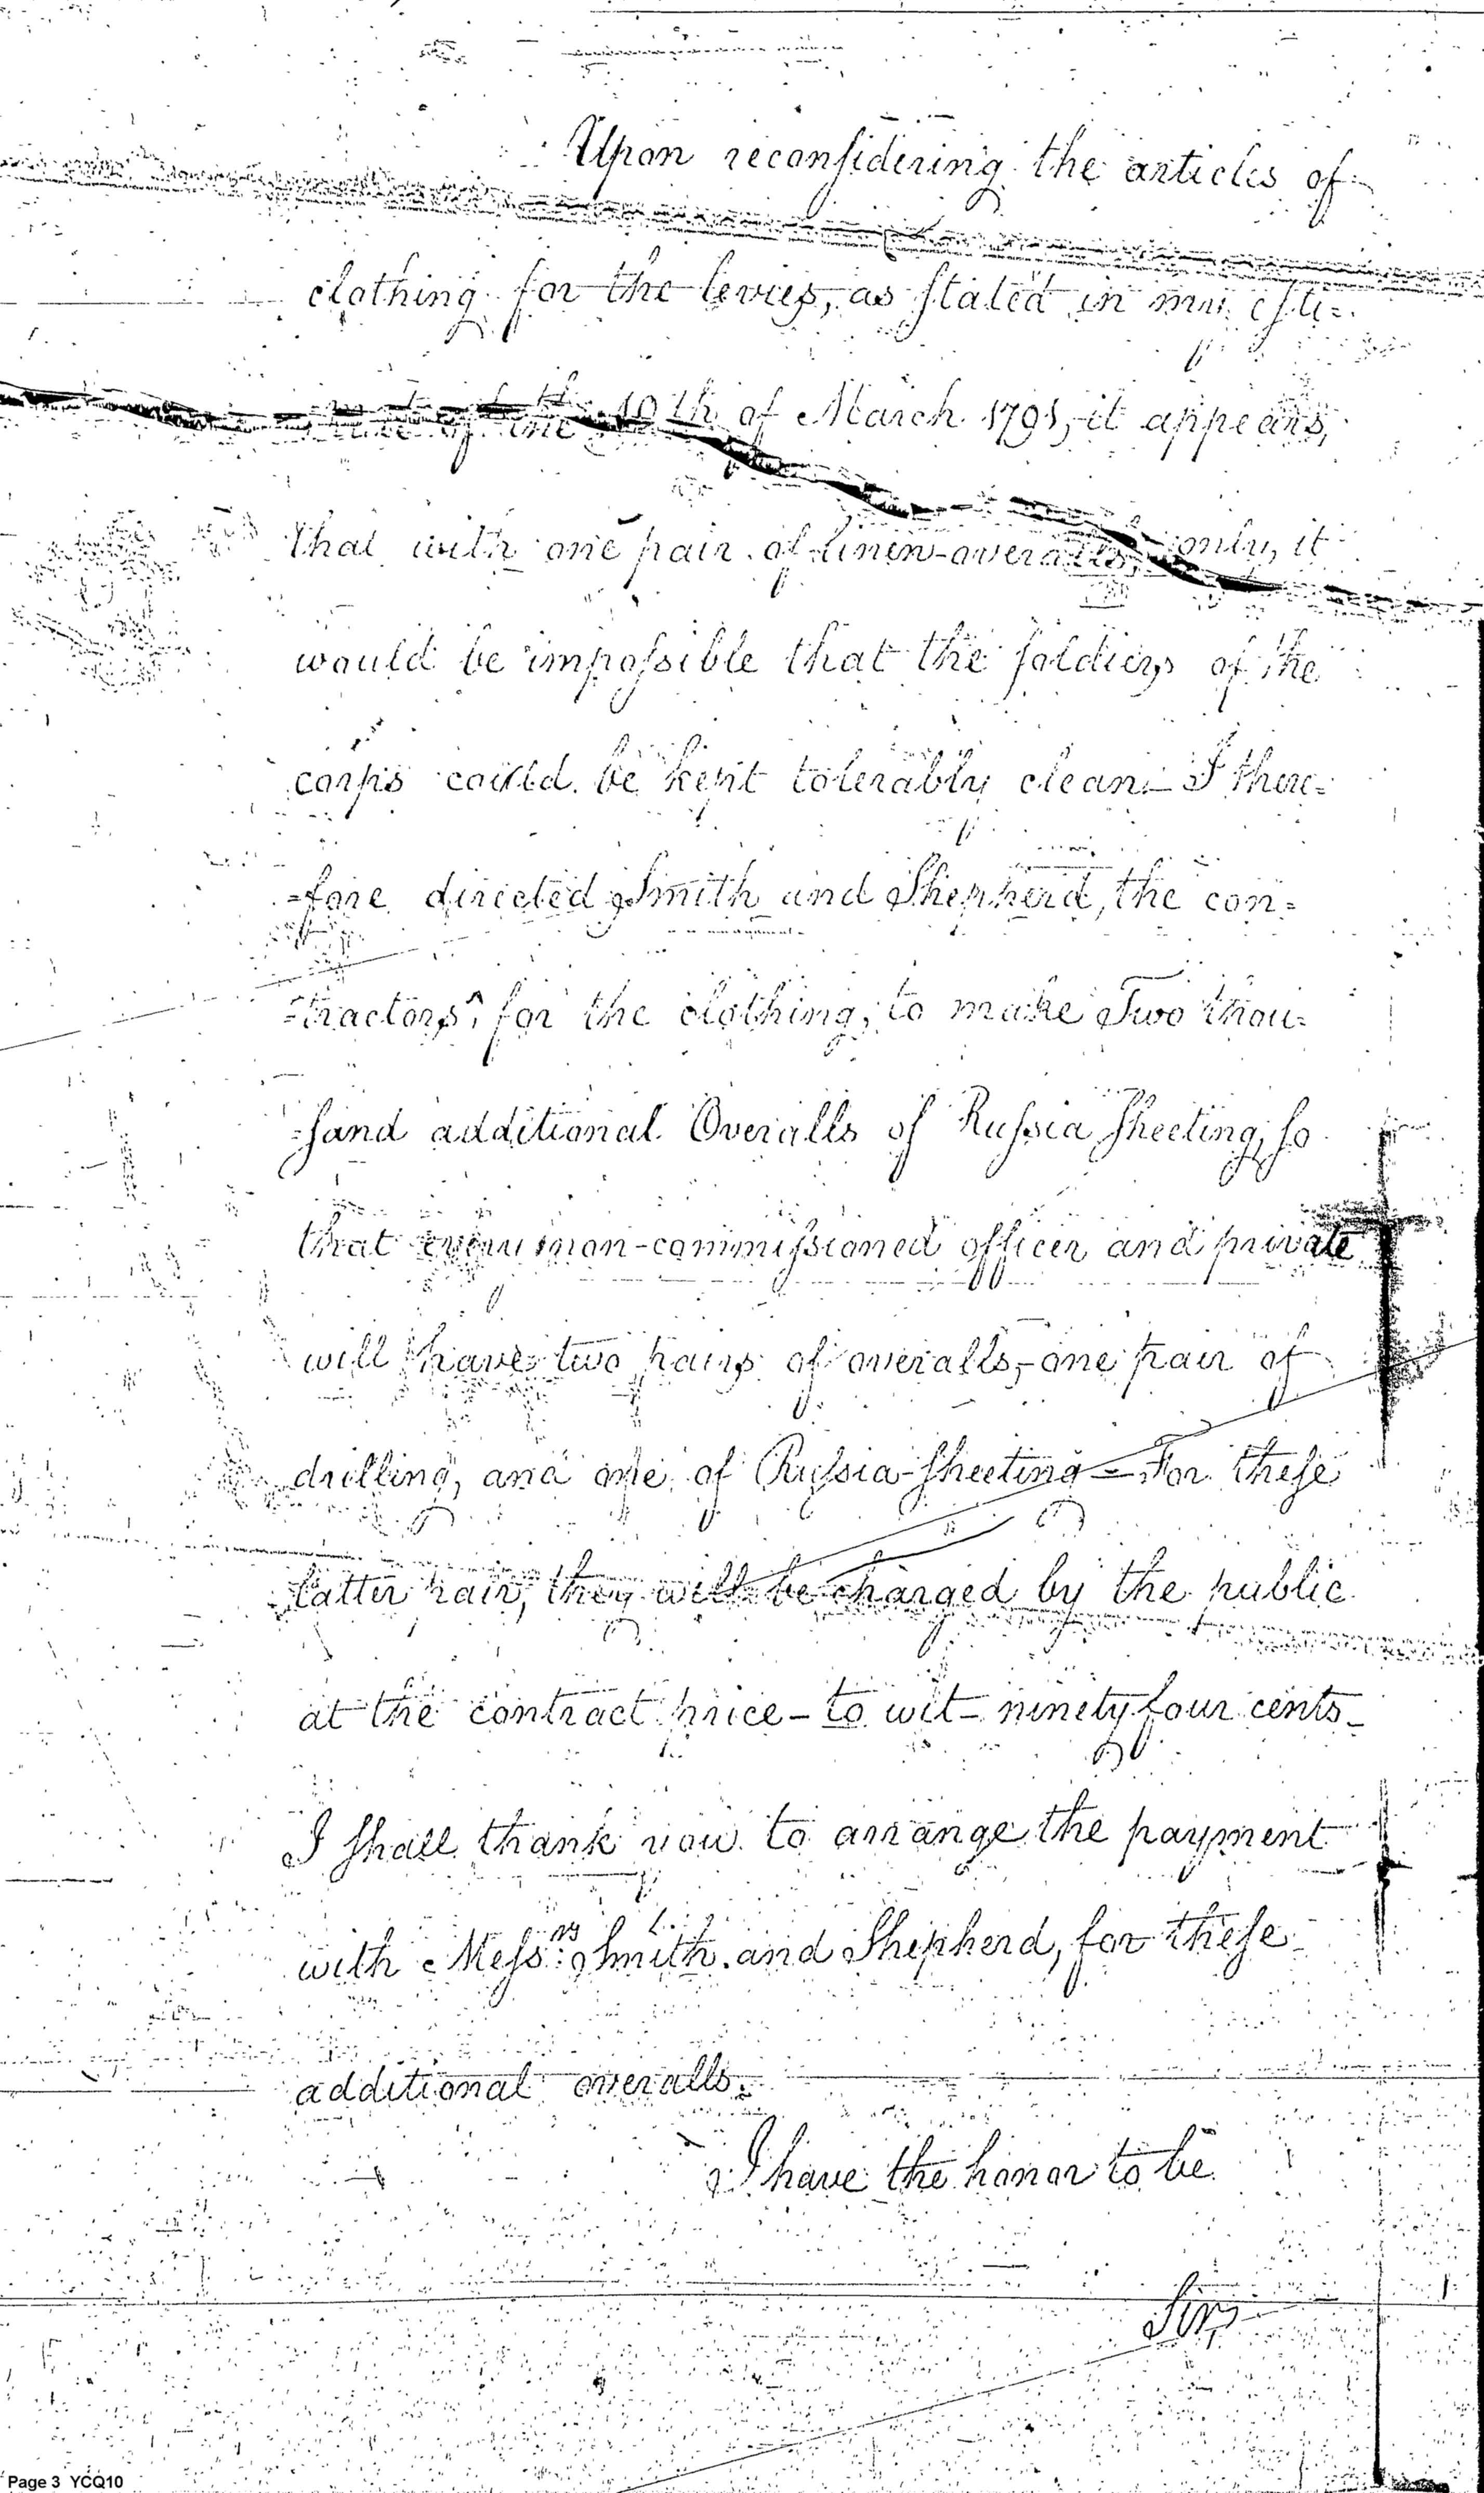 Upon reconsidering the articles of
clothing for the levies, as stated in my esti=
mate of the 10th of March 1791, it appears,
that with one pair of linen-overalls, only, it
would be impossible that the soldiers of the
corps could be kept tolerably clean – I there=
=fore directed Smith and Shepherd, the con=
=tractors, for the clothing, to make Two thou=
=sand additional Overalls of Russia sheeting, so
that every non-commissioned officer and private
will have two pairs of overalls, – one pair of
drilling, and one of Russia-sheeting – For these
latter pair, they will be charged by the public
at the contract price – to wit – ninety four cents –
I shall thank you to arrange the payment
with Messrs: Smith and Shepherd, for these
additional overalls.
I have the honor to be
Sir
Page 3 YCQ10